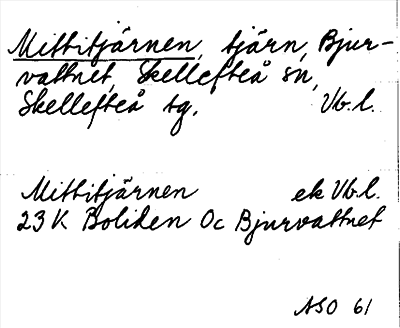 Mittitjärnen, tjärn, Bjur-
vattnet, Skellefteå sn,
Skellefteå tg. Vb.l.
Mittitjärnen ek Vb.l.
23 K Boliden Oc Bjurvattnet
ASO 61